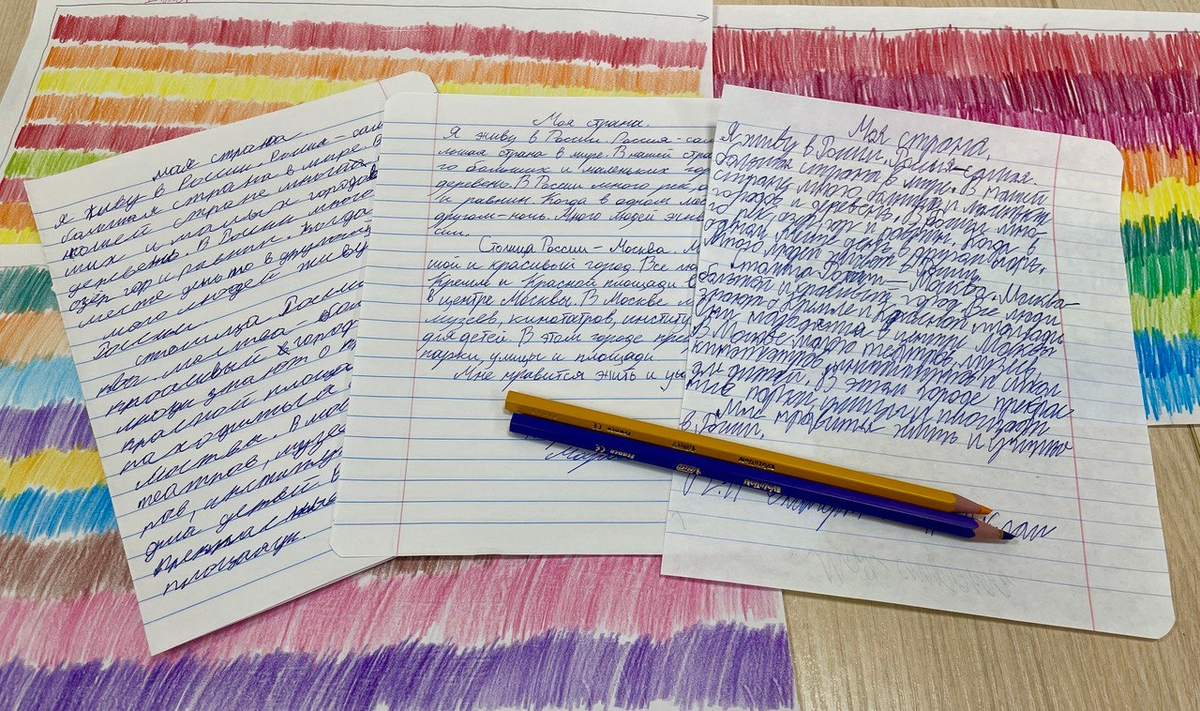 моя страна
я живу в России. Россия - сам
большая страна в мире. В
нашей стране много
ших и малых городов
деревень. В России много
озёр гор и равнин. Когда
месте утро в другом
много людей живу
России
столица России
ква Москва - бол
красивый город
люди знают о
красной площа
находится в
Москвы. В мос
театров, музе
ров, институ
для детей В
прекрасные
площади.
Моя страна.
Я живу в России. Россия - сам
льшая страна в мире. В нашей стра
го больших и маленьких гор
деревень. В России много рек, о
и равнин. Когда в одном мес
другом - ночь. Много людей жив
сии.
Столица России - Москва. М
шой и красивый город. Все лю
Кремле и Красной площади
в центре Москвы. В Москве м
музеев, кинотатров, институ
для детей. В этом городе прек
парки, улицы и площади
Мне нравится жить и учи
Моя страна.
Я живу в России. Россия - самая
большая страна в мире. В нашей
стране много больших и маленьких
городов и деревень. В России мно-
го рек, озёр, гор и равнин. Когда в
одном месте день в другом ночь.
Много людей живёт в России.
Столица России - Москва. Москва -
большой и красивый город. Все люди
знают о Кремле и Красной площади
Они находятся в центре Москвы
В Москве много театров, музеев,
кинотеатров, институтов и школ
для детей. В этом городе прекрас
ные парки, улицы и площади.
Мне нравится жить и учиться
в России.